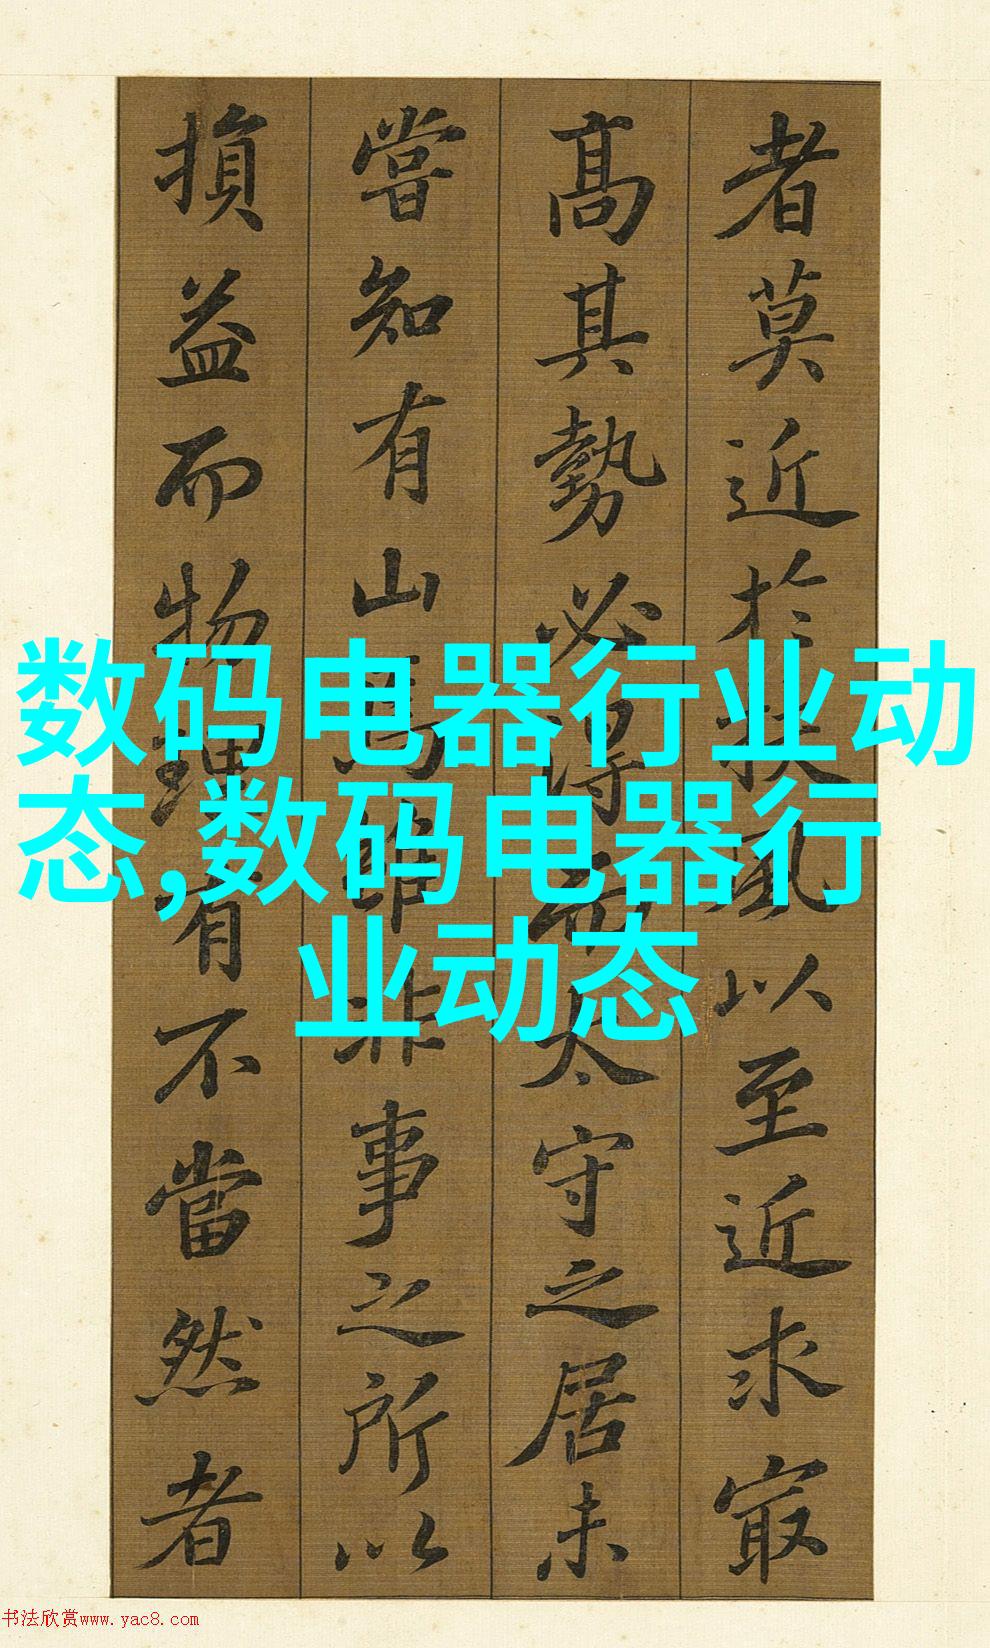 者莫近於扶風以至近求㝡
髙其勢必得而太守之居未
嘗知有山焉雖非事之所以
損益而物理有不當然者
数码电器行业动
态,数码电器行
业动态
书法欣赏www.yac8.com